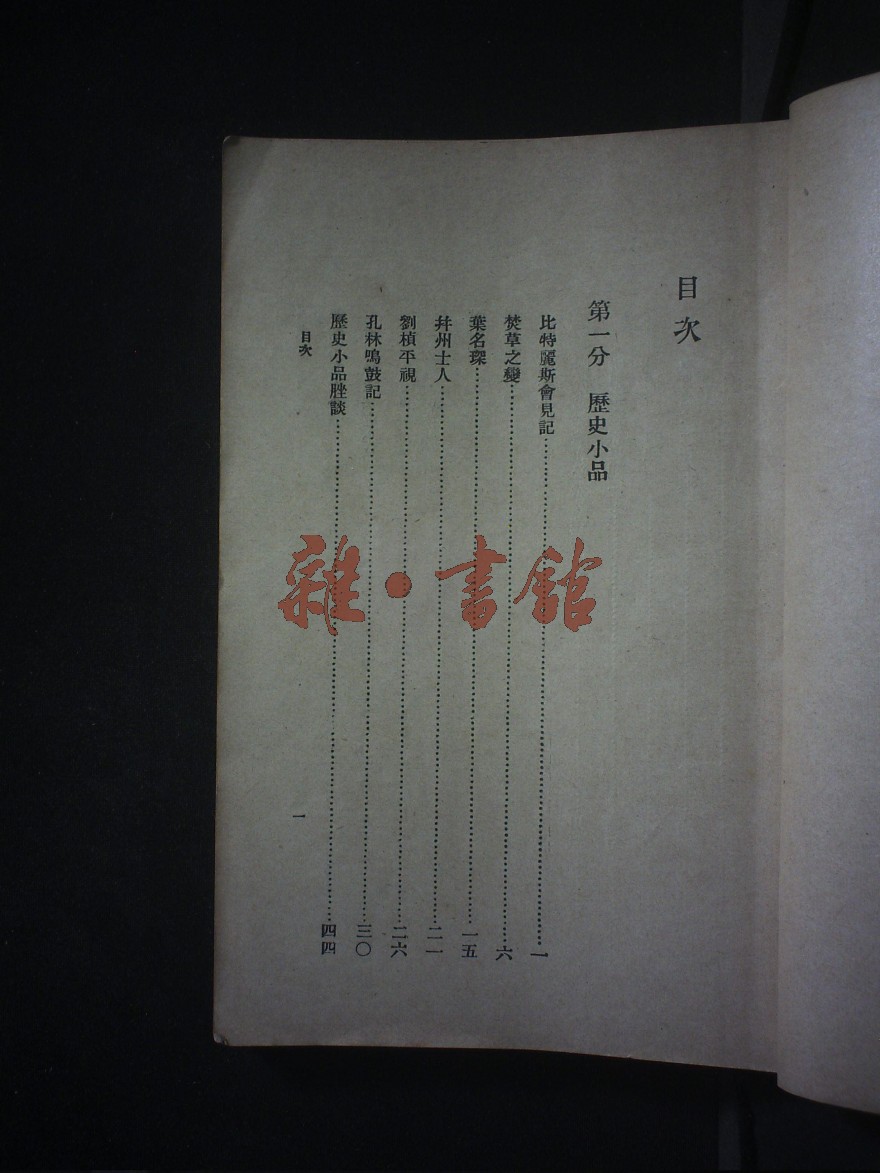 目次
第一分　歷史小品
比特麗斯會見記……一
焚草之變……六
葉名琛……一五
幷州士人……二一
劉楨平視……二六
孔林鳴鼓記……三〇
歷史小品脞談……四四
目次
一
雜·書館